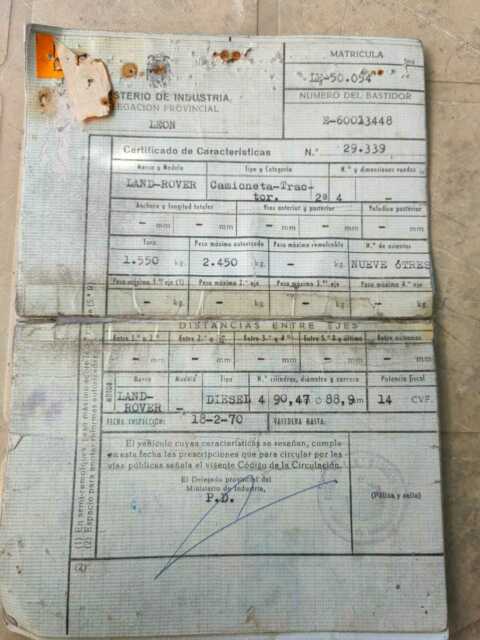 MATRICULA
LE-50.054
NUMERO DEL BASTIDOR
E-60013448
MINISTERIO DE INDUSTRIA
DELEGACION PROVINCIAL
LEON
Certificado de Características N.º 29.339
Marca y Modelo Tipo y Categoría N.º y dimensiones ruedas
LAND-ROVER Camioneta-Trac-
tor. 2ª 4 -
Anchura y longitud totales Vías anterior y posterior Voladizo posterior
- mm - mm - mm - mm - mm
Tara Peso máximo autorizado Peso máximo remolcable N.º de asientos
1.550 kg. 2.450 kg. - kg. NUEVE ó TRES
Peso máximo 1.er eje (1) Peso máximo 2.º eje Peso máximo 3.er eje Peso máximo 4.º eje
- kg. - kg. - kg. - kg.
DISTANCIAS ENTRE EJES
Entre 1.º y 2.º Entre 2.º y 3.º Entre 3.º y 4.º Entre 5.º y último Entre extremos
- mm - mm - mm - mm - mm
MOTOR
Marca Modelo Tipo N.º cilindros, diámetro y carrera Potencia fiscal
LAND-
ROVER - DIESEL 4 90,47 88,9 mm 14 CVF.
FECHA INSPECCION: 18-2-70 VALEDERA HASTA:
El vehículo cuyas características se reseñan, cumple
en esta fecha las prescripciones que para circular por las
vías públicas señala el vigente Código de la Circulación.
El Delegado provincial del
Ministerio de Industria,
P.D.
(Póliza y sello)
(1) En semi-remolques, peso máximo
(2) Espacio para anotar reformas autorizadas
(2)